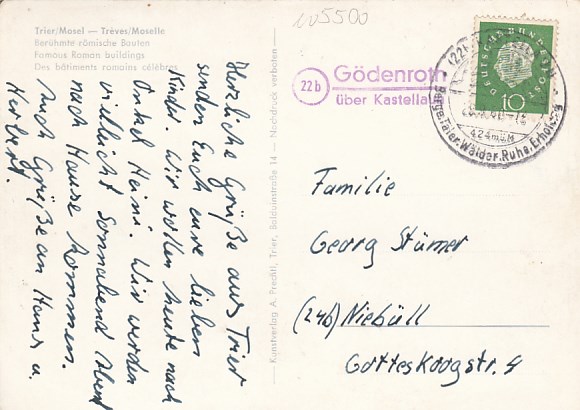 Trier/Mosel — Trèves/Moselle
Berühmte römische Bauten
Famous Roman buildings
Des bâtiments romains célèbres
105500
Herzliche Grüße aus Trier
senden Euch eure lieben
Kinder. Wir wollen heute nach
Onkel Heini. Wir werden
vielleicht Sonnabend Abend
nach Hause kommen.
Auch Grüße an Hans u.
Herbert.
Kunstverlag A. Fredill, Trier, Balduinstraße 14 — Nachdruck verboten
22b
Gödenroth
über Kastellaun
DEUTSCHE BUNDESPOST
10
424 m ü.M.
Berge.Täler.Wälder.Ruhe.Erholung
Familie
Georg Stümer
(24b) Niebüll
Gotteskoogstr. 4